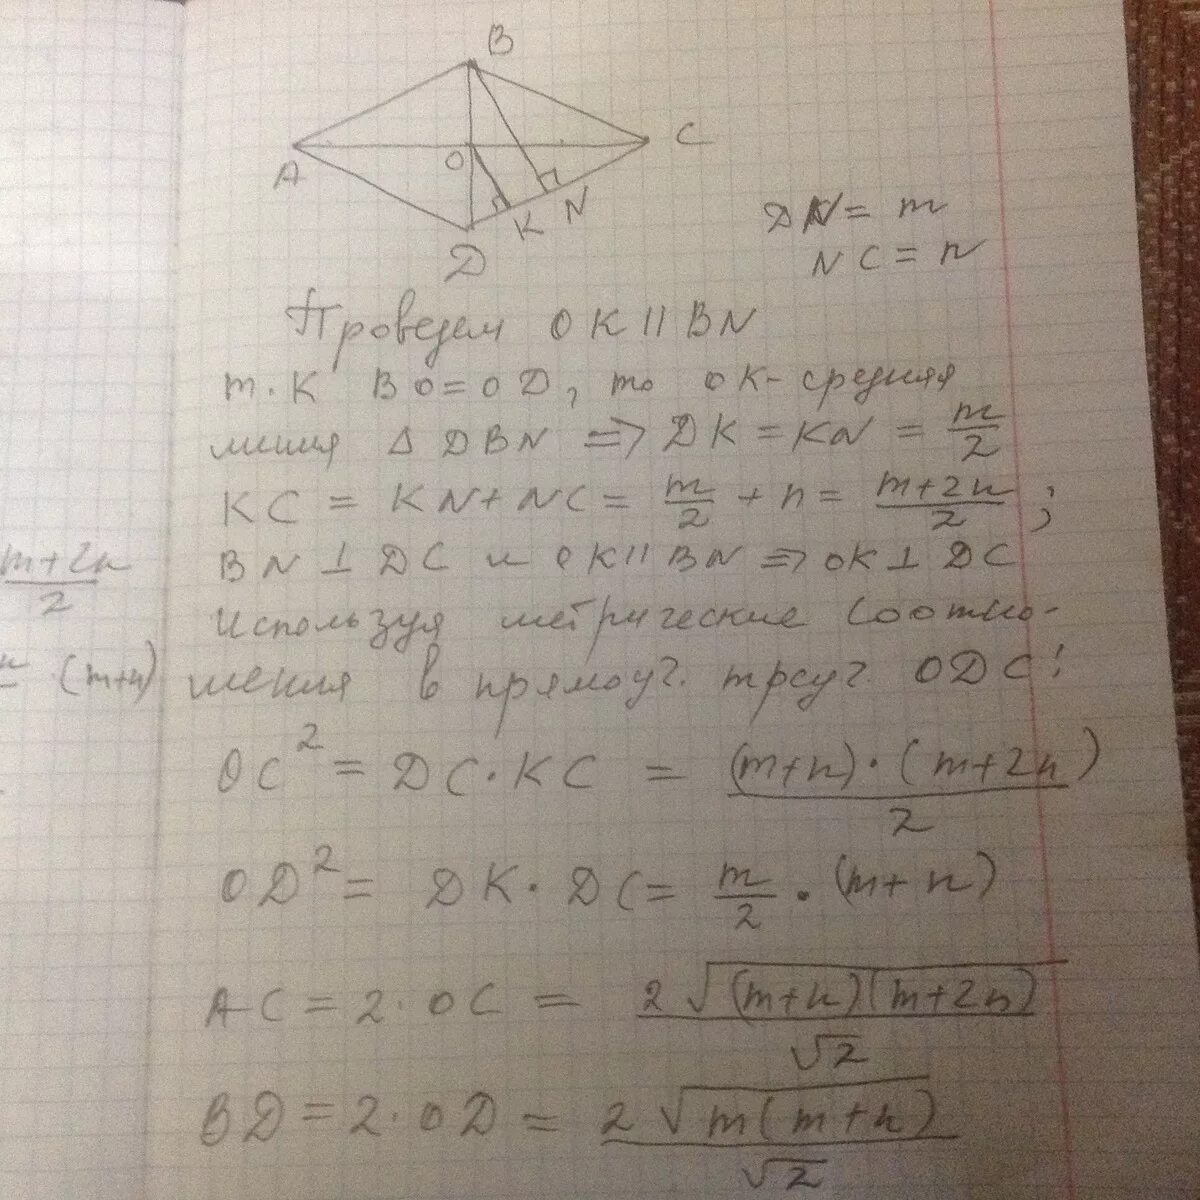 B
A
O
C
K
N
D
DN = m
NC = n
Проведем OK || BN
т.к BO = OD, то OK - средняя
линия Δ DBN => DK = KN = m/2
KC = KN + NC = m/2 + n = (m+2n)/2 ;
BN ⊥ DC и OK || BN => OK ⊥ DC
Используя метрические соотно-
шения в прямоуг. треуг. ODC:
OC² = DC · KC = (m+n) · (m+2n)/2
OD² = DK · DC = m/2 · (m+n)
AC = 2 · OC = 2√(m+n)(m+2n)/√2
BD = 2 · OD = 2√m(m+n)/√2
m+2n/2
· (m+n)